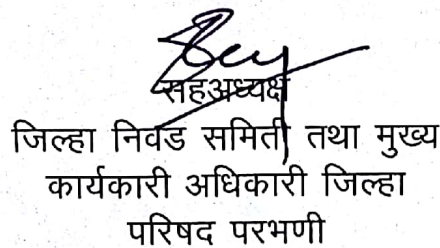 सहअध्यक्ष
जिल्हा निवड समिती तथा मुख्य
कार्यकारी अधिकारी जिल्हा
परिषद परभणी